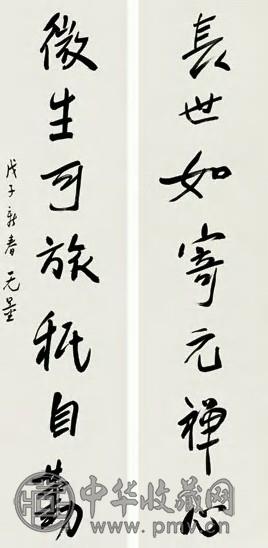 長世如寄元禅心
微生可旅秖自勤
戊子新春 无量
中华收藏网
www.pmv.cn